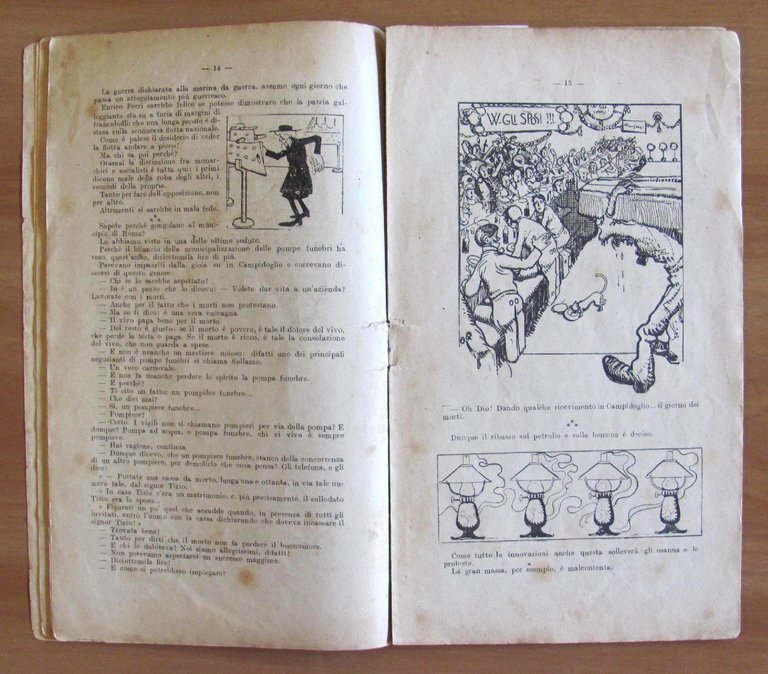 — 14 —
La guerra dichiarata alla marina da guerra, assume ogni giorno che
passa un atteggiamento più guerresco.
Enrico Ferri sarebbe felice se potesse dimostrare che la patria gal-
leggiante sta su a furia di margini di
francobolli: che una lunga pecetta è di-
stesa sulla sconnessa flotta nazionale.
Come è palese il desiderio di veder
la flotta andare a picco!
Ma chi sa poi perchè?
Oramai la distinzione fra monar-
chici e socialisti è tutta qui: i primi
dicono male della roba degli altri, i
secondi della propria.
Tanto per fare dell'opposizione, non
per altro.
Altrimenti si sarebbe in mala fede.
Sapete perchè gongolano al muni-
cipio di Roma?
Lo abbiamo visto in una delle ultime sedute.
Perchè il bilancio della municipalizzazione delle pompe funebri ha
reso, quest'anno, diciottomila lire di più.
Parevano impazziti dalla gioia su in Campidoglio e correvano di-
scorsi di questo genere:
— Chi se lo sarebbe aspettato!
— Io è un pezzo che lo dicevo: — Volete dar vita a un'azienda?
Lavorate con i morti.
— Anche per il fatto che i morti non protestano.
— Ma se ti dico: è una vera cuccagna.
— Il vivo paga bene per il morto.
— Del resto è giusto: se il morto è povero, è tale il dolore del vivo,
che perde la testa e paga. Se il morto è ricco, è tale la consolazione
del vivo, che non guarda a spese.
— E non è neanche un mestiere noioso: difatti uno dei principali
negozianti di pompe funebri si chiama Sollazzo.
— Un vero carnevale.
— E non fa neanche perdere lo spirito la pompa funebre.
— E perchè?
— Ti cito un fatto: un pompiere funebre...
— Che dici mai?
— Sì, un pompiere funebre..
— Pompiere?
— Certo. I vigili non si chiamano pompieri per via della pompa? E
dunque? Pompa ad acqua, o pompa funebre, chi ci vive è sempre
pompiere.
— Hai ragione, continua.
— Dunque dicevo, che un pompiere funebre, stanco della concorrenza
di un altro pompiere, per demolirlo che cosa pensa? Gli telefona, e gli
dice:
« — Portate una cassa da morto, lunga una e ottanta, in via tale nu-
mero tale, dal signor Tizio.
« In casa Tizio c'era un matrimonio, e, più precisamente, il sullodato
Tizio era lo sposo...
« Figurati un po' quel che accadde quando, in presenza di tutti gli
invitati, entrò l'uomo con la cassa dichiarando che doveva incassare il
signor Tizio! »
— Trovata bene!
— Tanto per dirti che il morto non fa perdere il buonumore.
— E chi lo dubitava? Noi siamo allegrissimi, difatti!
— Non potevamo aspettarci un successo maggiore.
— Diciottomila lire!
— E come si potrebbero impiegare?
— 15 —
W. GLI SPOSI !!!
— Oh Dio! Dando qualche ricevimento in Campidoglio... il giorno dei
morti.
Dunque il ribasso sul petrolio e sulla benzina è deciso.
Come tutte le innovazioni anche questa solleverà gli osanna e le
proteste.
La gran massa, per esempio, è malcontenta.